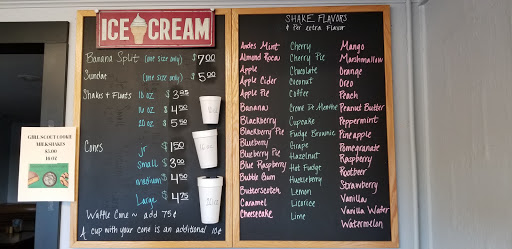 ICE CREAM
Banana Split (one size only) $7.00
Sundae (one size only) $5.00
Shakes + Floats 10 oz $3.75
16 oz $4.50
20 oz $5.50
Cones jr $1.50
Small $3.00
medium $4.50
Large $4.75
Waffle Cone ~ add 75¢
A cup with your cone is an additional 10¢
GIRL SCOUT COOKIE
MILKSHAKES
$5.00
16 OZ
SHAKE FLAVORS
Per extra Flavor
Andes Mint
Almond Roca
Apple
Apple Cider
Apple Pie
Banana
Blackberry
Blackberry Pie
Blueberry
Blueberry Pie
Blue Raspberry
Bubble Gum
Butterscotch
Caramel
Cheesecake
Cherry
Cherry Pie
Chocolate
Coconut
Coffee
Creme De Menthe
Cupcake
Fudge Brownie
Grape
Hazelnut
Hot Fudge
Huckleberry
Lemon
Licorice
Lime
Mango
Marshmallow
Orange
Oreo
Peach
Peanut Butter
Peppermint
Pineapple
Pomegranate
Raspberry
Rootbeer
Strawberry
Vanilla
Vanilla Wafer
Watermelon